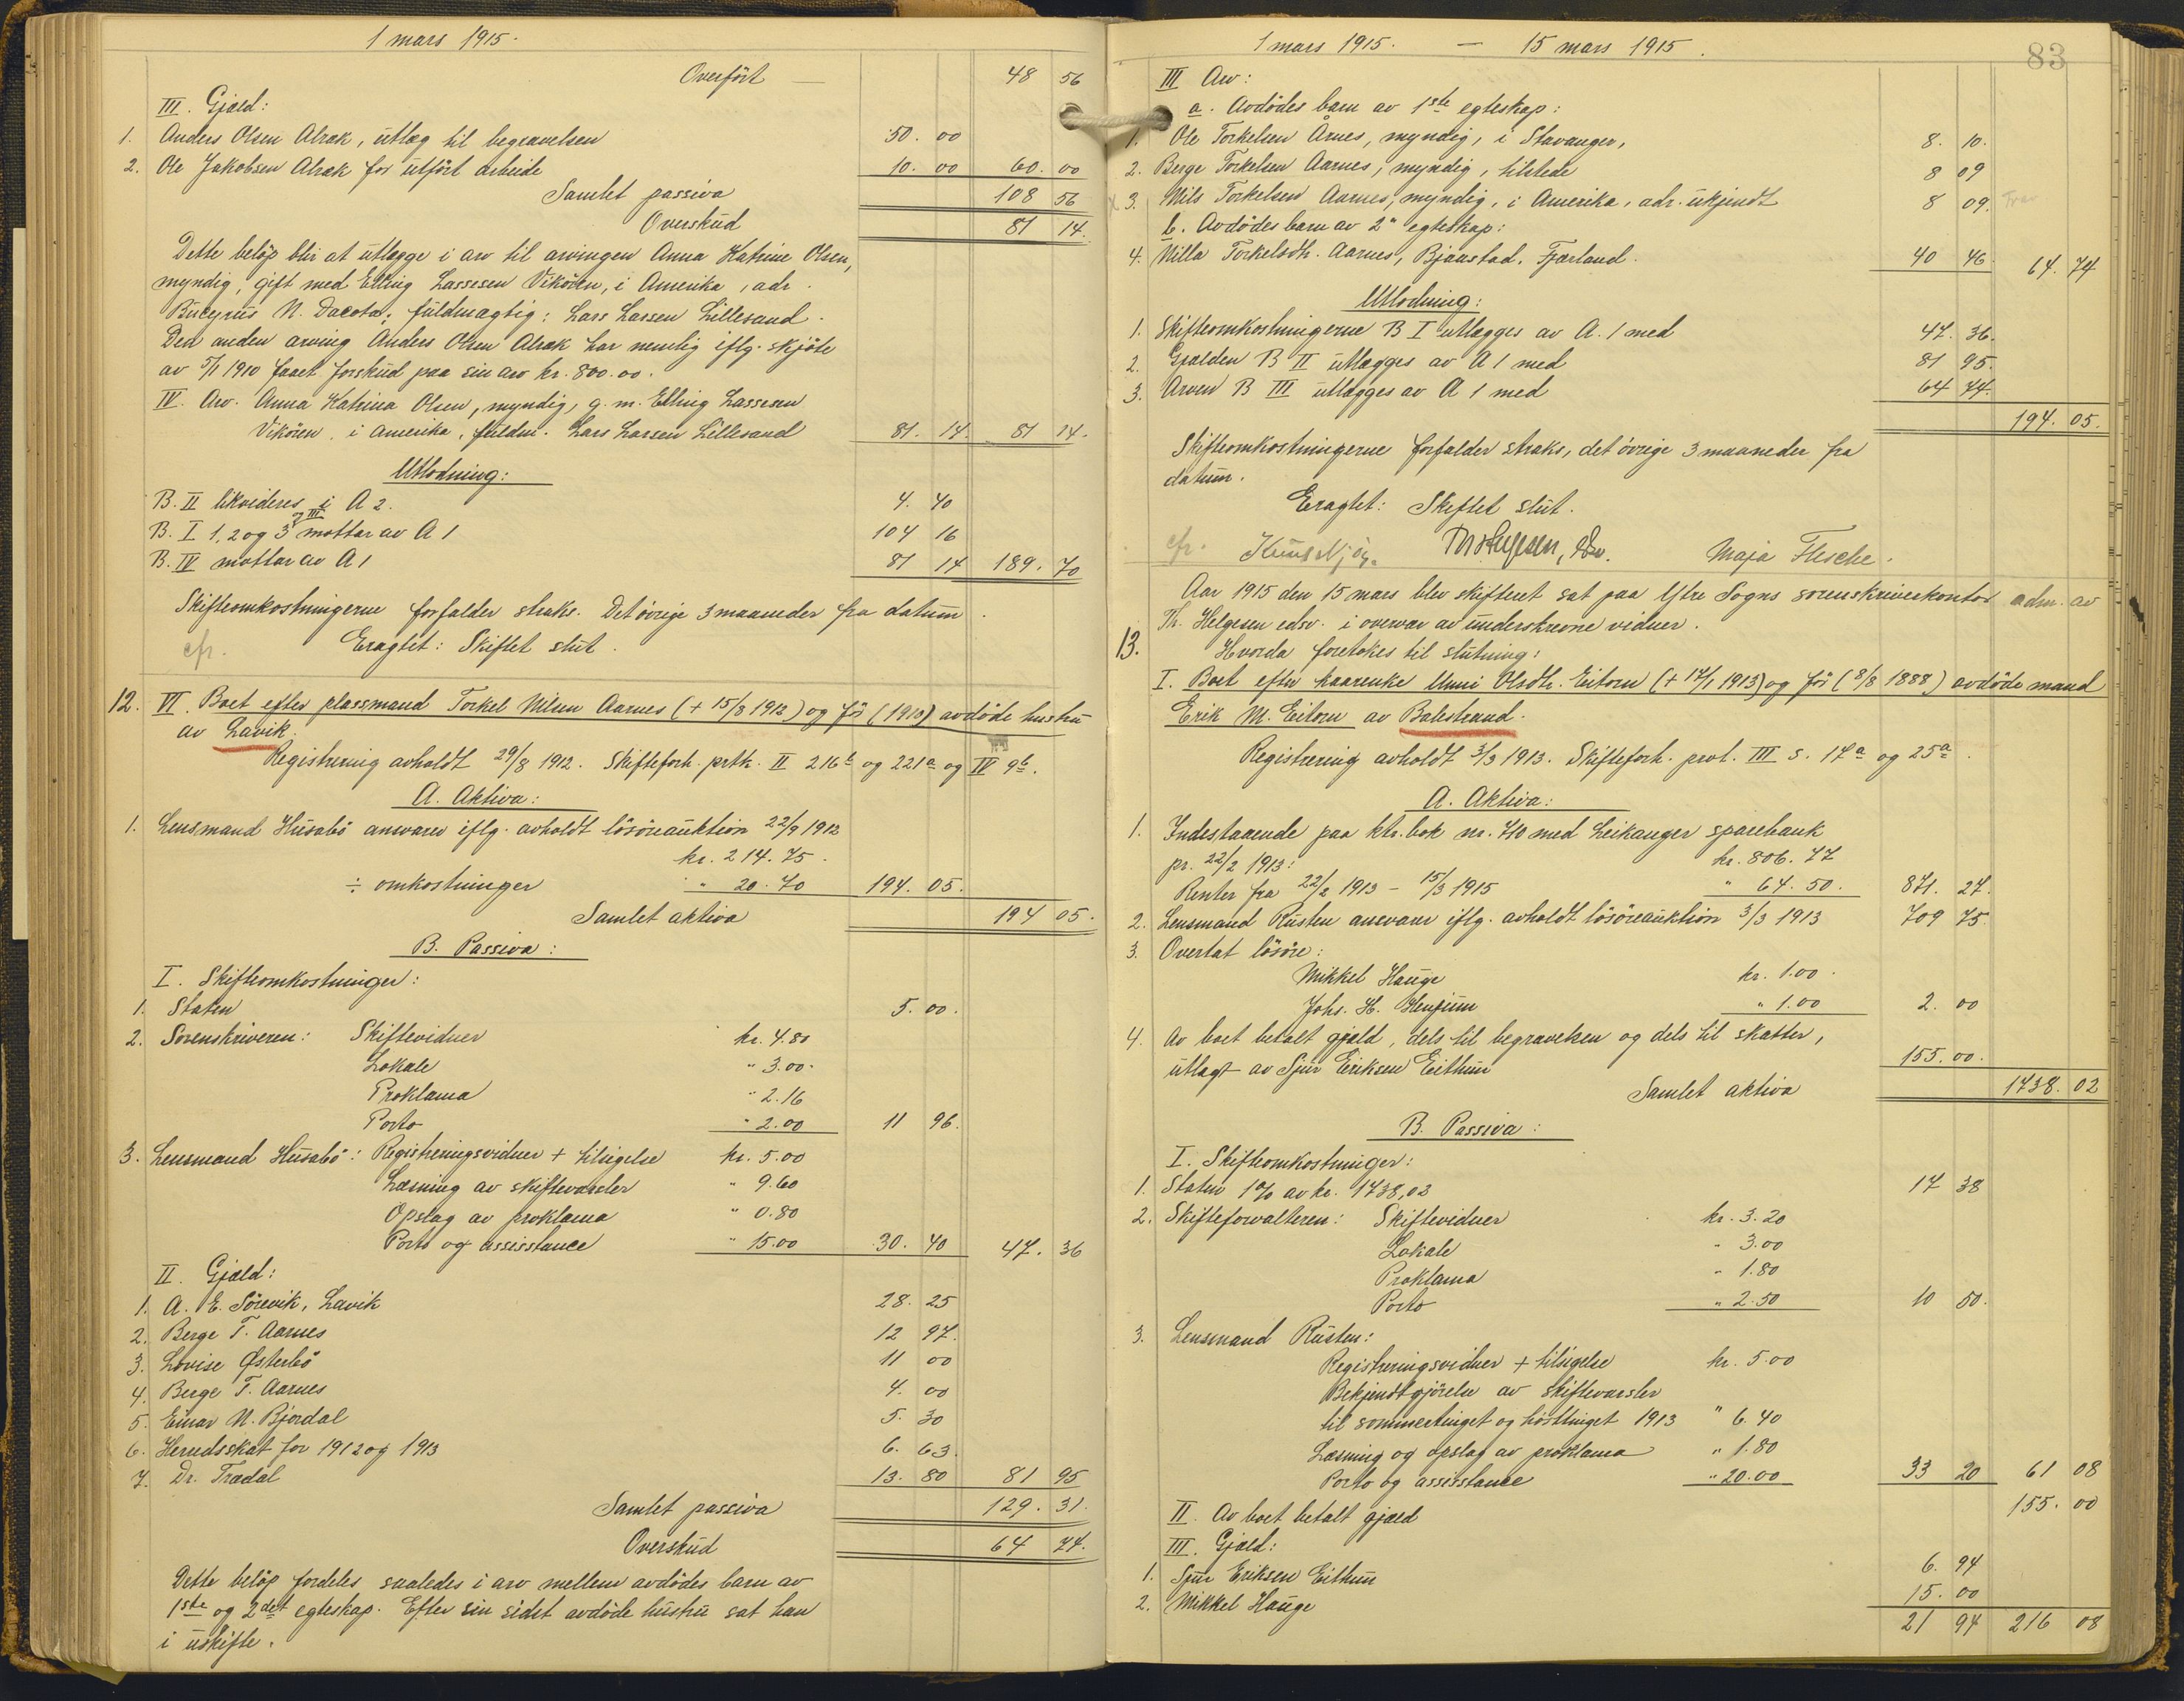 1 mars 1915.
Overført — 48 56
III. Gjæld:
1. Anders Olsen Alræk, utlæg til begravelsen 50.00
2. Ole Jakobsen Alræk for utført arbeide 10.00 60.00
Samlet passiva 108 56
Overskud 81 14.
Dette beløp blir at utlægge i arv til arvingen Anna Katrine Olsen,
myndig, gift med Elling Lassesen Vikören, i Amerika, adr.
Bucyrus N. Dacota; fuldmægtig: Lars Larsen Lillesand.
Den anden arving Anders Olsen Alræk har nemlig iflg. skjöte
av 5/1 1910 faaet forskud paa sin arv kr. 800.00.
IV. Arv. Anna Katrina Olsen, myndig, g. m. Elling Lassesen
Vikören, i Amerika, fuldm. Lars Larsen Lillesand 81.14. 81 14.
Utlodning:
B. II likvideres i A 2. 4.40
B. I 1, 2 og 3 og III mottar av A 1 104 16
B. IV mottar av A 1 81 14 189.70
Skifteomkostningerne forfalder straks. Det övrige 3 maaneder fra datum.
cfr. Eragtet: Skiftet slut.
12. VI. Boet efter plassmand Torkel Nilsen Aarnes (+ 15/8 1912) og för (1910) avdöde hustru
av Lavik.
Registrering avholdt 29/8 1912. Skifteforh. prtk. II 216b og 221a og IV 9b.
A. Aktiva:
1. Lensmand Husabö ansvarer iflg. avholdt lösöreauktion 22/9 1912
kr. 214.75.
÷ omkostninger " 20.70 194.05.
Samlet aktiva 194 05.
B. Passiva:
I. Skifteomkostninger:
1. Staten 5.00.
2. Sorenskriveren: Skiftevidner kr. 4.80
Lokale " 3.00.
Proklama " 2.16
Porto " 2.00 11 96.
3. Lensmand Husabö: Registreringsvidner + tilsigelse kr. 5.00
Læsning av skiftevarsler " 9.60
Opslag av proklama " 0.80
Porto og assisstance " 15.00 30.40 47.36
II. Gjæld:
1. A. E. Sörevik, Lavik 28.25
2. Berge T. Aarnes 12 97.
3. Lovise Østerbö 11 00
4. Berge T. Aarnes 4.00
5. Einar N. Bjordal 5.30
6. Herredsskat for 1912 og 1913 6.63.
7. Dr. Trædal 13.80 81 95
Samlet passiva 129.31.
Overskud 64 74.
Dette belöp fordeles saaledes i arv mellem avdödes barn av
1ste og 2det egteskap. Efter sin sidst avdöde hustru sat han
i uskifte.
1 mars 1915. — 15 mars 1915.
83
III Arv:
a. Avdödes barn av 1ste egteskap:
1. Ole Torkelsen Årnes, myndig, i Stavanger, 8.10.
2. Berge Torkelsen Aarnes, myndig, tilstede 8 09
x 3. Nils Torkelsen Aarnes, myndig, i Amerika, adr. ukjendt 8 09.
b. Avdödes barn av 2" egteskap:
4. Milla Torkelsdtr. Aarnes, Bjaastad, Fjærland. 40 46 64.74
Utlodning:
1. Skifteomkostningerne B I utlægges av A. 1 med 47.36.
2. Gjælden B II utlægges av A 1 med 81 95.
3. Arven B III utlægges av A 1 med 64 74.
194.05.
Skifteomkostningerne forfalder straks, det övrige 3 maaneder fra
datum.
Eragtet: Skiftet slut.
cfr. Th Helgesen, edsv. Maja Flesche.
Aar 1915 den 15 mars blev skifteret sat paa Ytre Sogns sorenskriverkontor adm. av
Th. Helgesen edsv. i overvær av underskrevne vidner.
13. Hvorda foretokes til slutning:
I. Boet efter kaarenke Unni Olsdtr. Eitorn (+ 14/1 1913) og för (8/8 1888) avdöde mand
Erik M. Eitorn av Balestrand.
Registrering avholdt 3/3 1913. Skifteforh. prot. III s. 17a og 25a.
A. Aktiva:
1. Indestaaende paa ktr. bok nr. 710 med Leikanger sparebank
pr. 22/2 1913: kr. 806.77
Renter fra 22/2 1913 – 15/3 1915 " 64.50. 871.27.
2. Lensmand Rusten ansvarer iflg. avholdt lösöreauktion 3/3 1913 709 75.
3. Overtat lösöre:
Mikkel Hauge kr. 1.00.
Johs. H. Henjum " 1.00 2.00
4. Av boet betalt gjæld, dels til begravelsen og dels til skatter,
utlagt av Sjur Eriksen Eithun 155.00.
Samlet aktiva 1738.02
B. Passiva:
I. Skifteomkostninger:
1. Staten 1% av kr. 1738,02 17 38
2. Skifteforvalteren: Skiftevidner kr. 3.20
Lokale " 3.00
Proklama " 1.80
Porto " 2.50 10 50.
3. Lensmand Rusten:
Registreringsvidner + tilsigelse kr. 5.00
Bekjendtgjörelse av skiftevarsler
til sommertinget og hösttinget 1913 " 6.40
Læsning og opslag av proklama " 1.80
Porto og assisstance " 20.00 33 20 61 08
II. Av boet betalt gjæld 155.00
III. Gjæld:
1. Sjur Eriksen Eithun 6.94
2. Mikkel Hauge 15.00
21 94 216 08